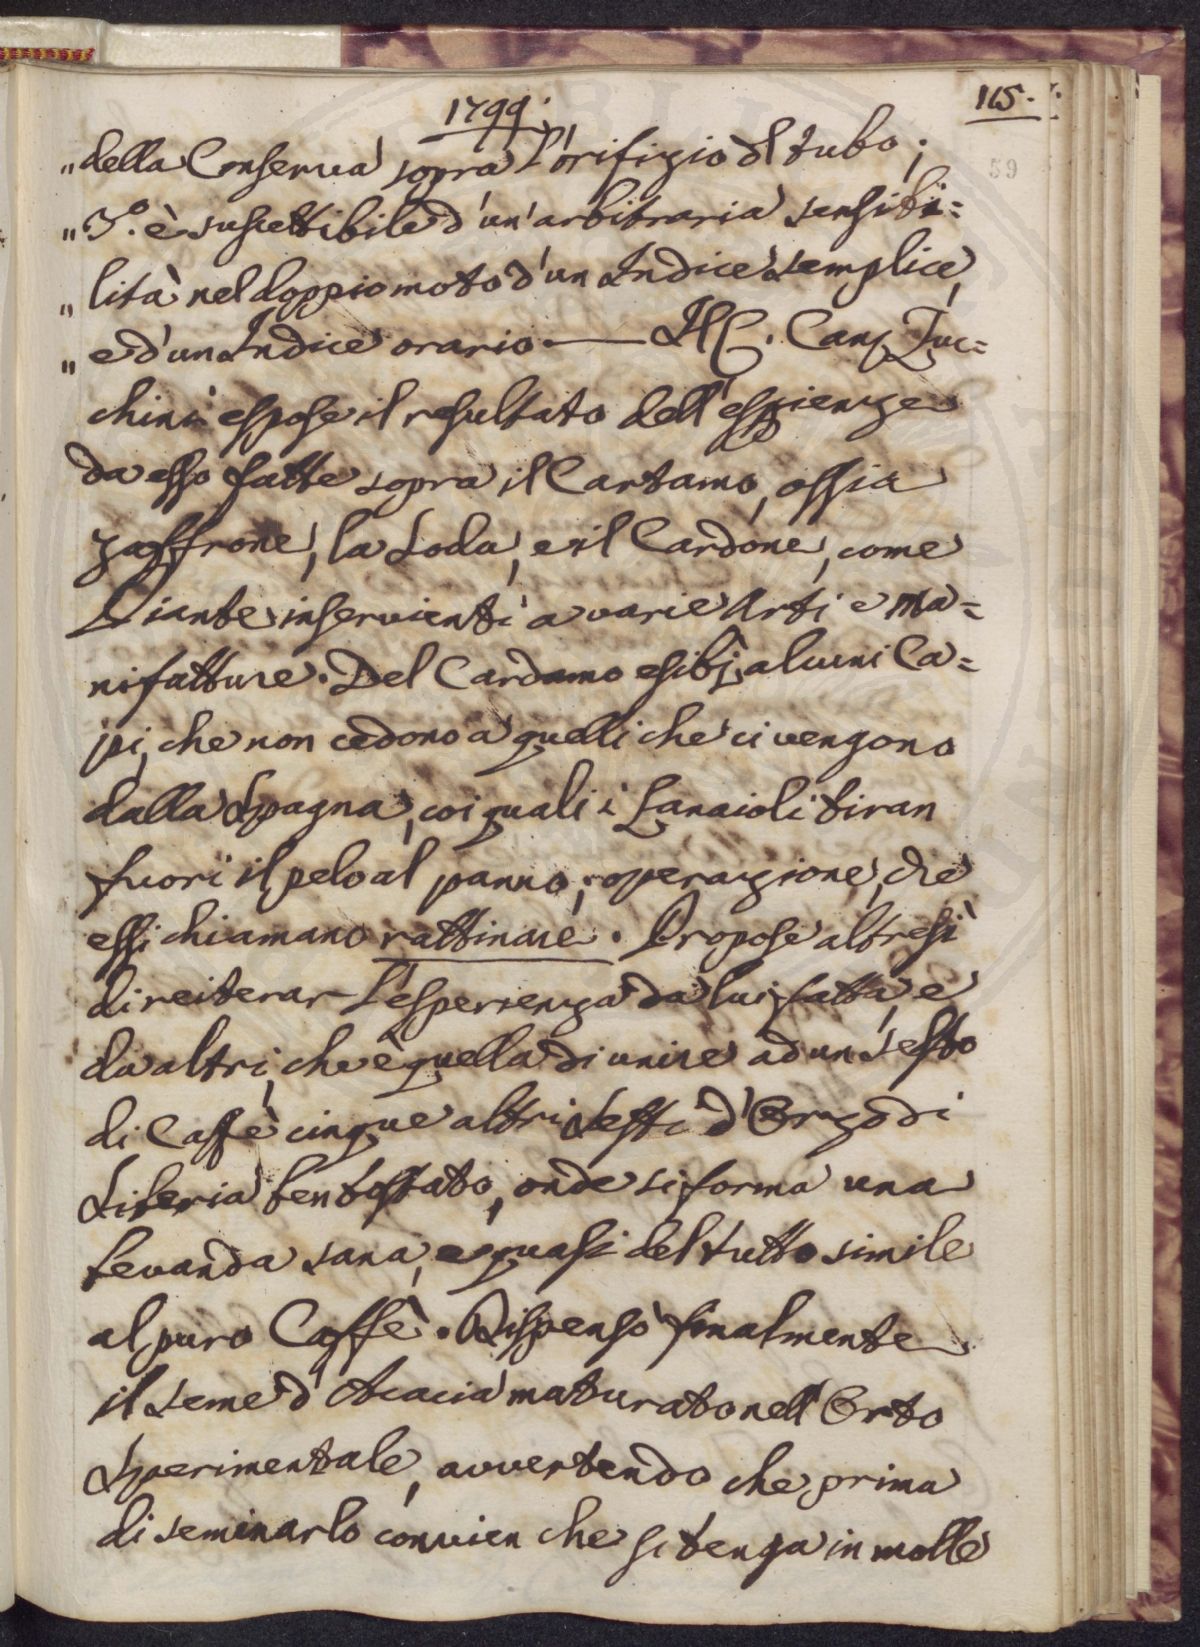 1799. 115.
59
„ della Conserva sopra l'orifizio del tubo;
„ 3.° è suscettibile d'un'arbitraria sensibi=
„ lità nel doppio moto d'un Indice semplice,
„ e d'un Indice orario — Il C. Can. Zuc=
chini espose il resultato dell'esperienze
da esso fatte sopra il Cartamo, ossia
zaffrone, la Soda, e il Cardone, come
Piante inservienti a varie Arti e ma=
nifatture. Del Cardamo esibì alcuni Ca=
pi, che non cedono a quelli che ci vengono
dalla Spagna, coi quali i Lanaioli tiran
fuori il pelo al panno; operazione, che
essi chiamano rattinare. Propose altresì
di reiterar l'esperienza da lui fatta, e
da altri, che è quella di unire ad un sesto
di Caffè cinque altri sesti d'Orzo di
Siberia ben tostato, onde si forma una
bevanda sana, e quasi del tutto simile
al puro Caffè. Dispensò finalmente
il seme d'Acacia maturato nell'Orto
Sperimentale, avvertendo che prima
di seminarlo convien che si tenga in molle